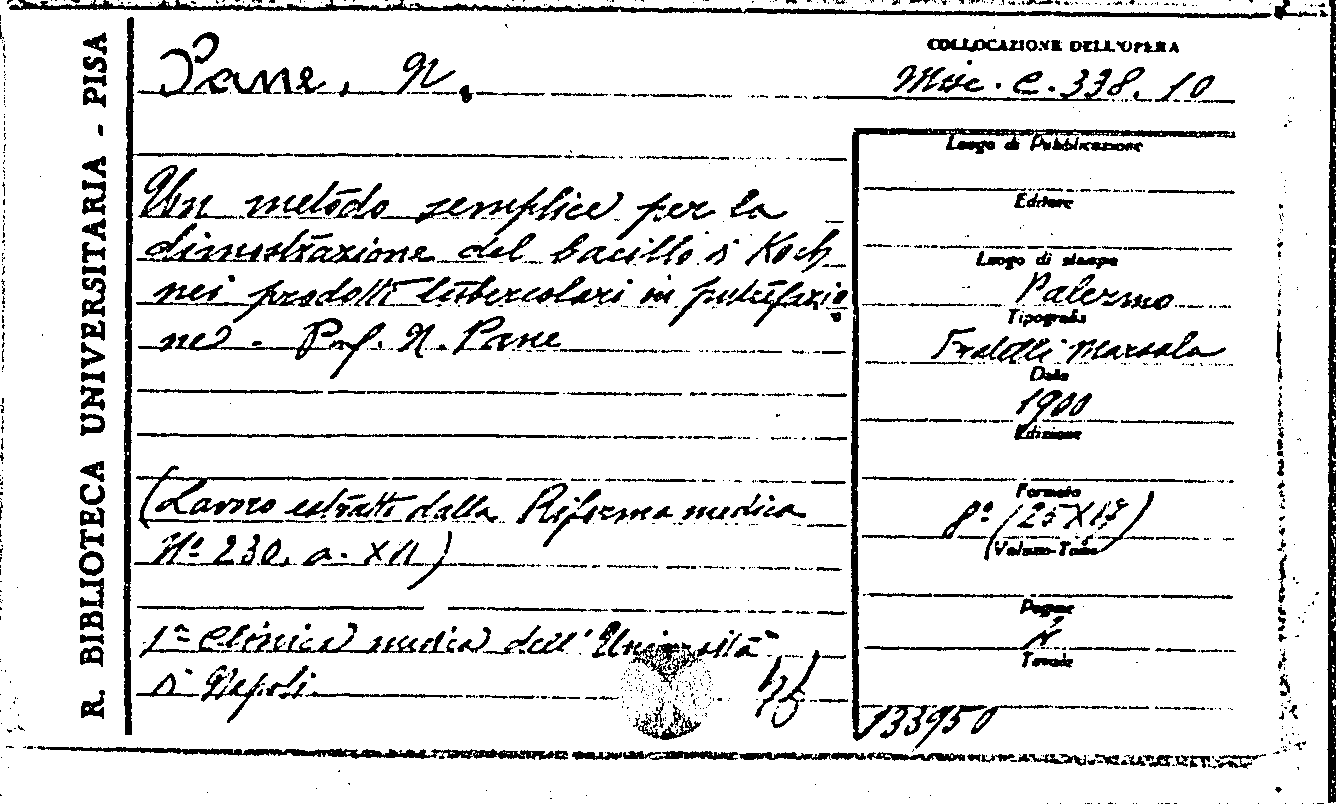 R. BIBLIOTECA UNIVERSITARIA - PISA
Pane, N.
COLLOCAZIONE DELL'OPERA
Misc. C. 338. 10
Un metodo semplice per la
dimostrazione del bacillo di Koch
nei prodotti tubercolari in putrefazio
ne - Prof. N. Pane
(Lavoro estratto dalla Riforma medica
Nº 230. a. XVI)
1ª Clinica medica dell'Università
di Napoli
Luogo di Pubblicazione
Editore
Luogo di stampa
Palermo
Tipografia
Fratelli Marsala
Data
1900
Edizione
Formato
8º (25 X 17)
(Volume-Tomo
Pagine
Tavole
133950